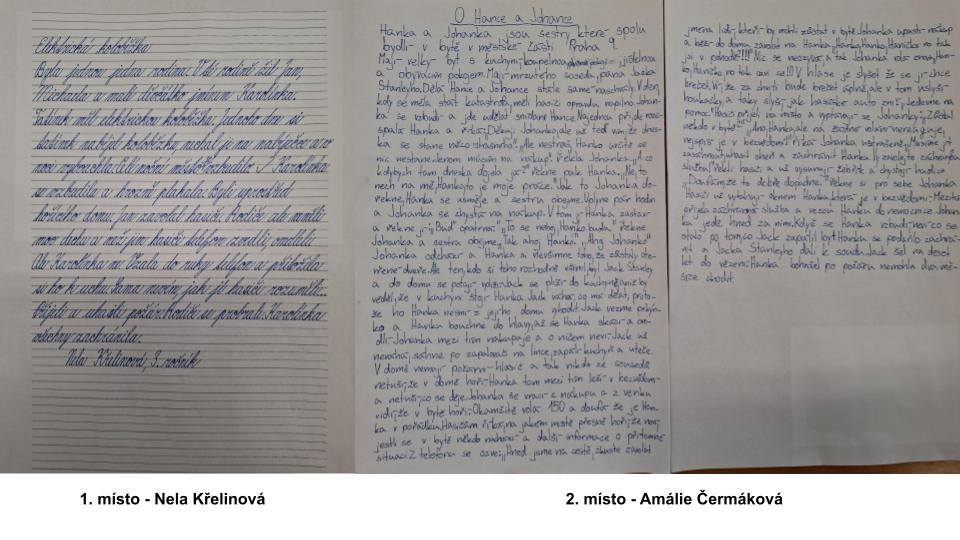 Elektrická koloběžka
Byla jednou jedna rodina. V té rodině žili Jan,
Michaela a malá holčičko jménem Karolínka.
Tatínek měl elektrickou koloběžku, jednoho dne si
tatínek nabíjel koloběžku, nechal ji na nabíječce a v
noci vybouchla. Karolínka
se vzbudila a hrozně plakala. Byli uprostřed
hořícího domu. Jan zavolal hasiče. Rodiče ale neměli
moc dechu a než jim hasiči telefon zvedli, omdleli
Ale Karolínka ne. Vzala do ruky telefon a přiložila
si ho k uchu. Sama nevím, jak jí hasiči rozuměli...
Přijeli a uhasili požár. Rodiče se probrali. Karolínka
všechny zachránila.
Nela Křelinová, 3. ročník
O Hance a Johance
Hanka a Johanka jsou sestry které spolu
bydlí v bytě v městské části Praha 9.
Mají velký byt s kuchyní, koupelnou, jídelnou
a obývacím pokojem. Mají mrzutého souseda, pána Jacka
Stanleyho. Dělá Hance a Johance stále samé naschvály. V den,
kdy se měla stát katastrofa, měli hasiči opravdu naplno. Johanka
se vzbudí a jde udělat snídani Hance. Najednou přijde rozespalá
Hanka a říká: „Johanko, ale už teď vím, že dneska
se stane něco strašného!" „Ale nestraší, Hanko určitě se
nic nestane. Jenom musím na nákup." řekla Johanka. „A co
kdybych tam dneska došla já?" řekne pak Hanka. „Ne, to
nech na mě, Hanko, to je moje práce." Jak to Johanka do-
řekne, Hanka se usměje a sestru obejme. Uplyne pár hodin
a Johanka se chystá na nákup. V tom ji Hanka zastaví
a řekne jí: „Buď opatrná." „To se neboj, Hanko, budu" řekne
Johanka a sestra obejme. „Tak ahoj Hanko." „Ahoj Johanko"
Johanka odchází a Hanka si nevšimne toho, že zůstaly ote-
vřené dveře. Ale ten, kdo si toho rozhodně všiml, byl Jack Stanley
a do domu se potají vplíží. Jack se plíží do kuchyně, aniž by
věděl, že v kuchyni stojí Hanka. Jack neváhá, co má dělat, proto-
že ho Hanka nesmí z jejího domu vyhodit. Jack vezme
a Hanku bouchne do hlavy, až se Hanka skácí a om-
dlí. Johanka mezi tím nakupuje a o ničem neví. Jack už
nevnímá, sáhne po zapalovači na lince, zapálí kuchyň a uteče.
V domě nemají požární hlásič a tak nikdo ze sousedů
netuší, že v domě hoří. Hanka tam mezi tím leží v bezvědomí
a netuší, co se děje. Johanka se vrací z nákupu a z venku
vidí, že v bytě hoří. Okamžitě volá 150 a doufá že je Han-
ka v pořádku. Hasičům říká, na jakém místě přesně hoří, že neví,
jestli se v bytě někdo nachází a další informace o přítomné
situaci. Z telefonu se ozve: „Ihned jsme na cestě, zkuste zavolat
jména lidí, kteří by mohli zůstat v bytě. Johanka upustí nákup
a běží do domu zavolat na Hanku. „Hanko, Hanko, Haničko no tak
jsi v pohodě?!!" Nic se neozývá, a tak Johanka volá znovu „Han-
ko, Haničko, no tak ozvi se!!!" V hlase je slyšet že se jí chce
brečet. Ví, že za chvíli bude brečet úplně, ale v tom uslyší
houkačky, a taky slyší jak hasičské auto zní: „Jedeme na
pomoc." Hasiči přijeli na místo a vyptávají se Johanky: „Zůstal
někdo v bytě?" „Ano, Hanka, ale na žádné volání nereaguje,
nejspíš je v bezvědomí!" říká Johanka ustrašeně. „Musíme jí
zasáhnout, uhasit oheň a zachránit Hanku. Vy zavolejte záchrannou
službu." Velel hasič a už vysunují žebřík a chystají hadice.
„Doufám, že to dobře dopadne." Řekne si pro sebe Johanka
Hasiči už vytahují oknem Hanku, která je v bezvědomí. Mezitím
přijela záchranná služba a vezou Hanku do nemocnice. Johan-
ka jede hned za nimi. Když se Hanka vzbudí, neví co se
stalo po tom co Jack zapálil byt. Hanka se podařilo zachrá-
nit a Jacka Stanleyho dali k soudu. Jack šel na deset
let do vězení. Hanka bohužel po požáru nemohla dva mě-
síce chodit.
1. místo - Nela Křelinová
2. místo - Amálie Čermáková